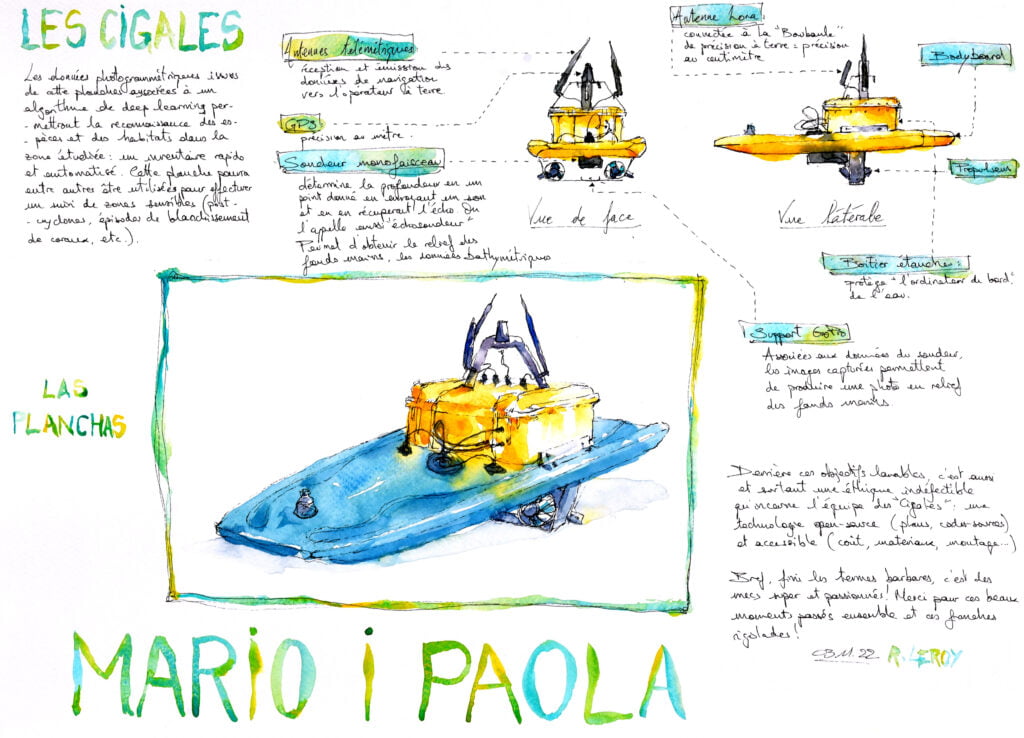 LES CIGALES
Les données photogrammétriques issues
de cette planche associées à un
algorithme de deep learning per-
-mettront la reconnaissance des es-
-pèces et des habitats dans la
zone étudiée : un inventaire rapide
et automatisé. Cette planche pourra
entre autres être utilisée pour effectuer
un suivi de zones sensibles (post-
-cyclones, épisodes de blanchissement
de coraux, etc.).
Antennes télémétriques
réception et émission des
données de navigation
vers l'opérateur à terre
GPS
précision au mètre.
Sondeur monofaisceau
détermine la profondeur en un
point donné en envoyant un son
et en en récupérant l'écho. On
l'appelle aussi "échosondeur"
Permet d'obtenir le relief des
fonds marins, les données bathymétriques
Vue de face
Antenne Lora :
connectée à la
de précision à terre = précision
au centimètre
Bodyboard
Propulseurs
Vue latérale
Boîtier étanche :
protège "l'ordinateur de bord"
de l'eau.
Support GoPro
Associées aux données du sondeur,
les images capturées permettent
de produire une photo en relief
des fonds marins.
LAS
PLANCHAS
Derrière ces objectifs louables, c'est aussi
et surtout une éthique indéfectible
qu'incarne l'équipe des "Cigales" : une
technologie open-source (plans, codes-sources)
et accessible (coût, matériaux, montage...)
Bref, finis les termes barbares, c'est des
mecs super et passionnés ! Merci pour ces beaux
moments passés ensemble et ces franches
rigolades !
22 R. LEROY
MARIO i PAOLA